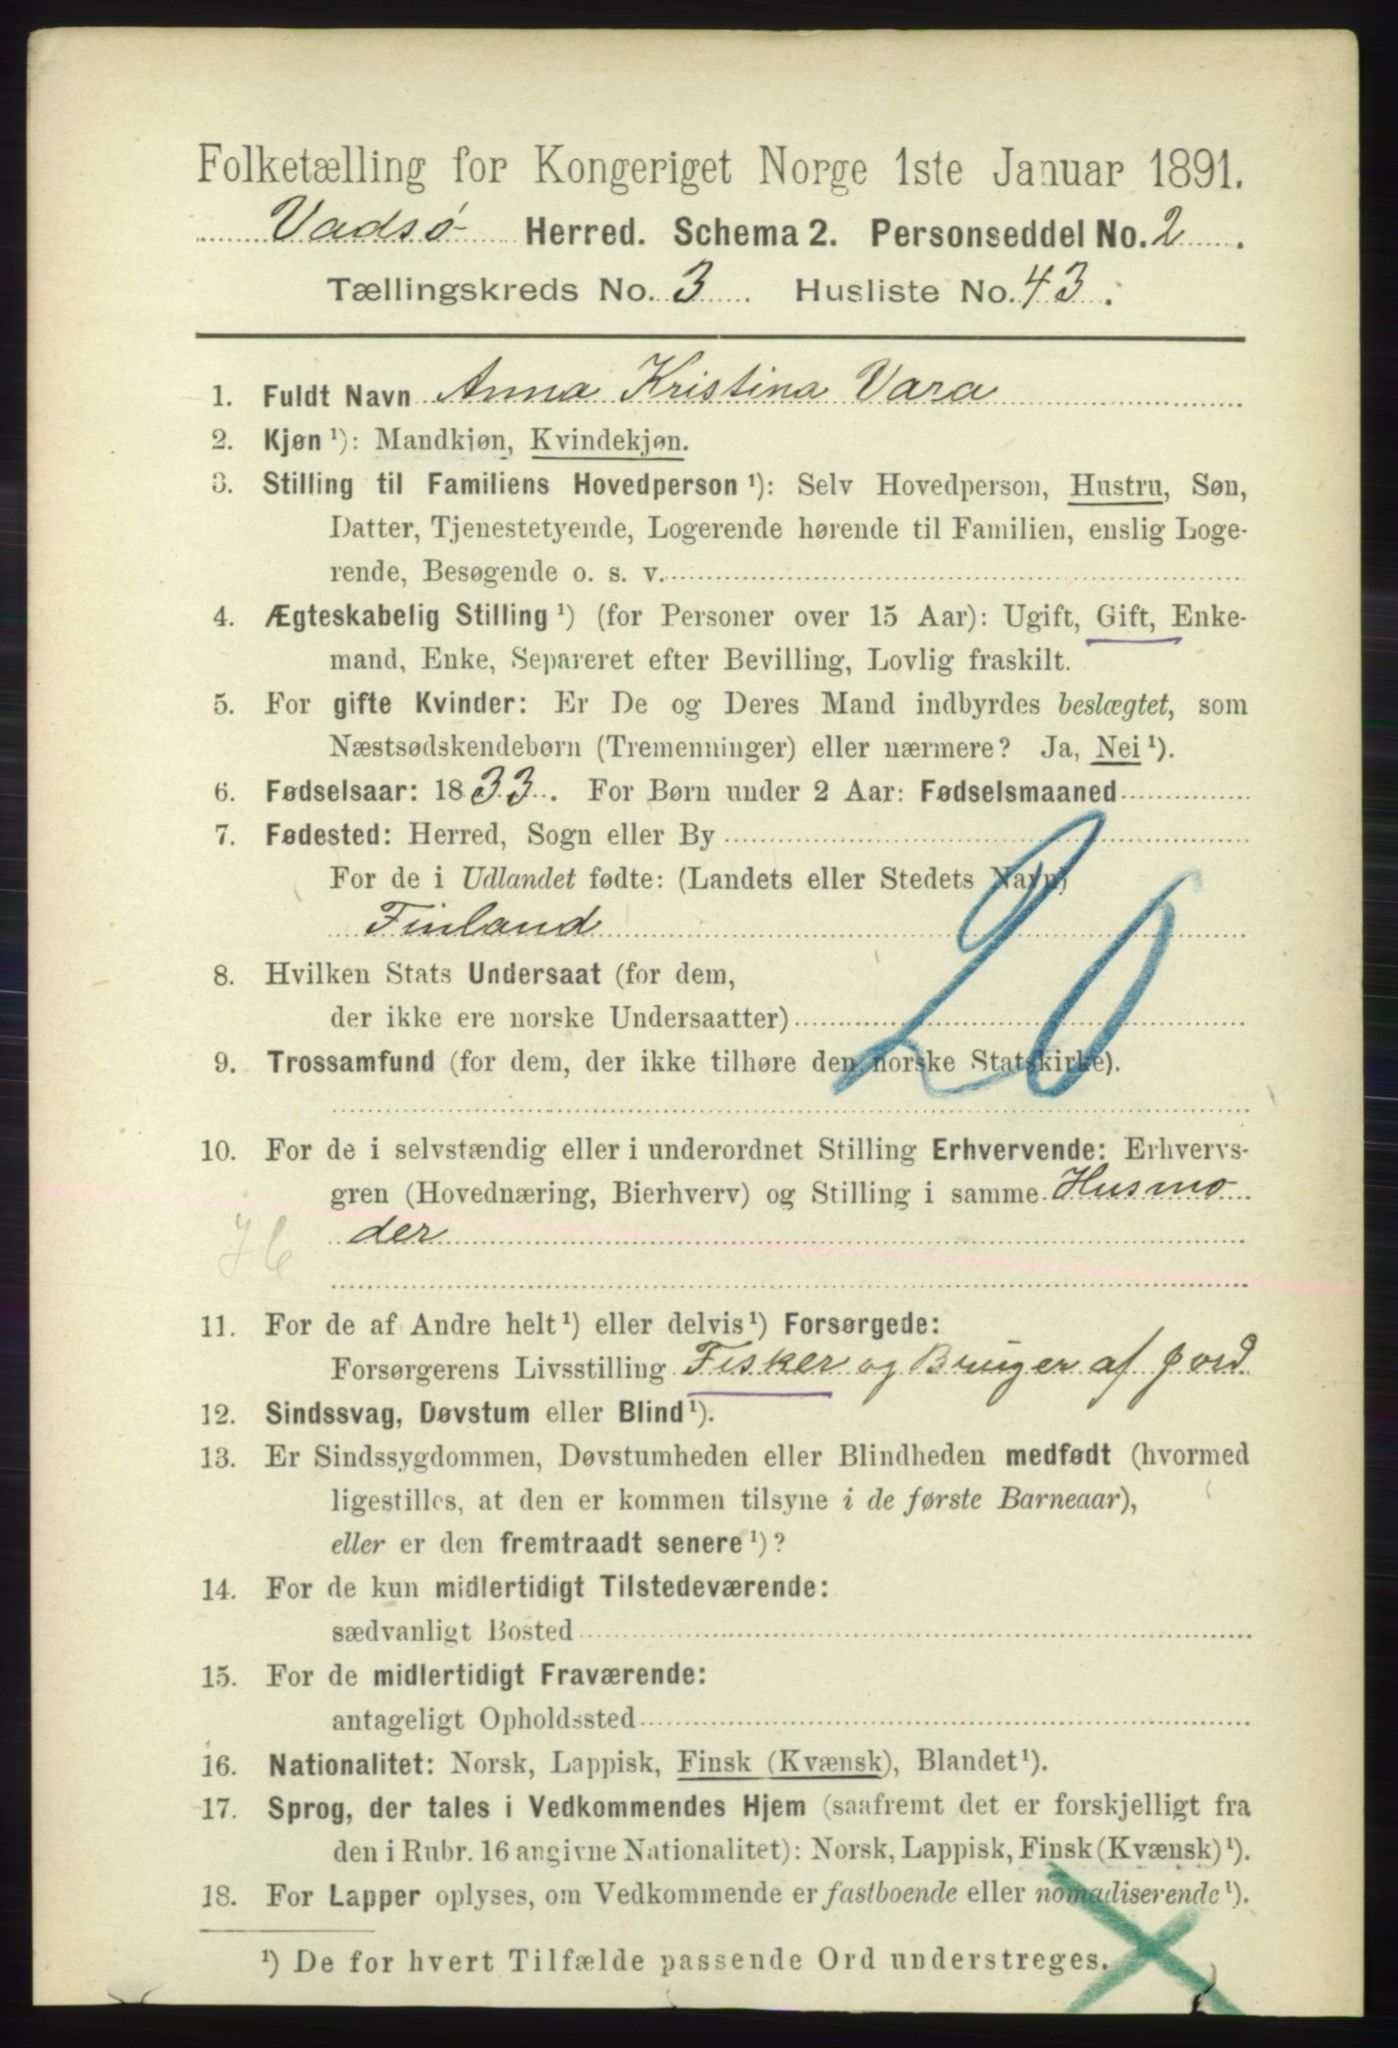 Folketælling for Kongeriget Norge 1ste Januar 1891.
Vadsø Herred. Schema 2. Personseddel No. 2.
Tællingskreds No. 3. Husliste No. 43.
1. Fuldt Navn Anna Kristina Vara
2. Kjøn ¹): Mandkjøn, Kvindekjøn.
3. Stilling til Familiens Hovedperson ¹): Selv Hovedperson, Hustru, Søn,
Datter, Tjenestetyende, Logerende hørende til Familien, enslig Loge-
rende, Besøgende o. s. v.
4. Ægteskabelig Stilling ¹) (for Personer over 15 Aar): Ugift, Gift, Enke-
mand, Enke, Separeret efter Bevilling, Lovlig fraskilt.
5. For gifte Kvinder: Er De og Deres Mand indbyrdes beslægtet, som
Næstsødskendebørn (Tremenninger) eller nærmere? Ja, Nei ¹).
6. Fødselsaar: 1833. For Børn under 2 Aar: Fødselsmaaned
7. Fødested: Herred, Sogn eller By
For de i Udlandet fødte: (Landets eller Stedets Navn)
Finland
20
8. Hvilken Stats Undersaat (for dem,
der ikke ere norske Undersaatter)
9. Trossamfund (for dem, der ikke tilhøre den norske Statskirke).
10. For de i selvstændig eller i underordnet Stilling Erhvervende: Erhvervs-
gren (Hovednæring, Bierhverv) og Stilling i samme Husmo
der
11. For de af Andre helt ¹) eller delvis ¹) Forsørgede:
Forsørgerens Livsstilling Fisker og Bruger af jord
12. Sindssvag, Døvstum eller Blind ¹).
13. Er Sindssygdommen, Døvstumheden eller Blindheden medfødt (hvormed
ligestilles, at den er kommen tilsyne i de første Barneaar),
eller er den fremtraadt senere ¹)?
14. For de kun midlertidigt Tilstedeværende:
sædvanligt Bosted
15. For de midlertidigt Fraværende:
antageligt Opholdssted
16. Nationalitet: Norsk, Lappisk, Finsk (Kvænsk), Blandet ¹).
17. Sprog, der tales i Vedkommendes Hjem (saafremt det er forskjelligt fra
den i Rubr. 16 angivne Nationalitet): Norsk, Lappisk, Finsk (Kvænsk) ¹).
18. For Lapper oplyses, om Vedkommende er fastboende eller nomadiserende ¹).
¹) De for hvert Tilfælde passende Ord understreges.